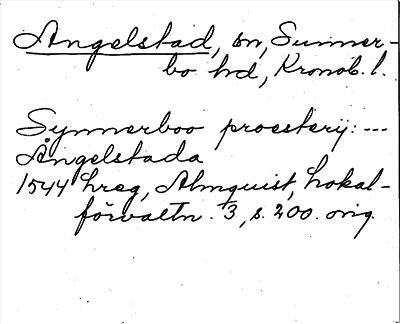 Angelstad, sn, Sunner-
bo hd, Kronob. l.
Synnerboo proesterij: ---
Ångelstada
1544 hreg, Almquist, Lokal-
förvaltn. 3, s. 200. orig.